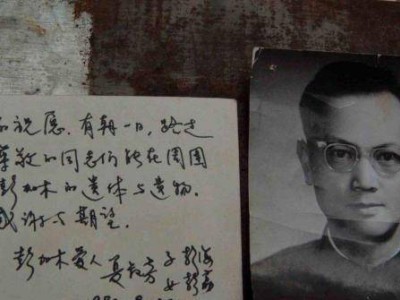 的祝愿. 有朝一日, 路过
尊敬的同志们能在周围
彭加木的遗体与遗物.
感谢与期望.
彭加木爱人 夏叔芳 子 彭海
女 彭荔